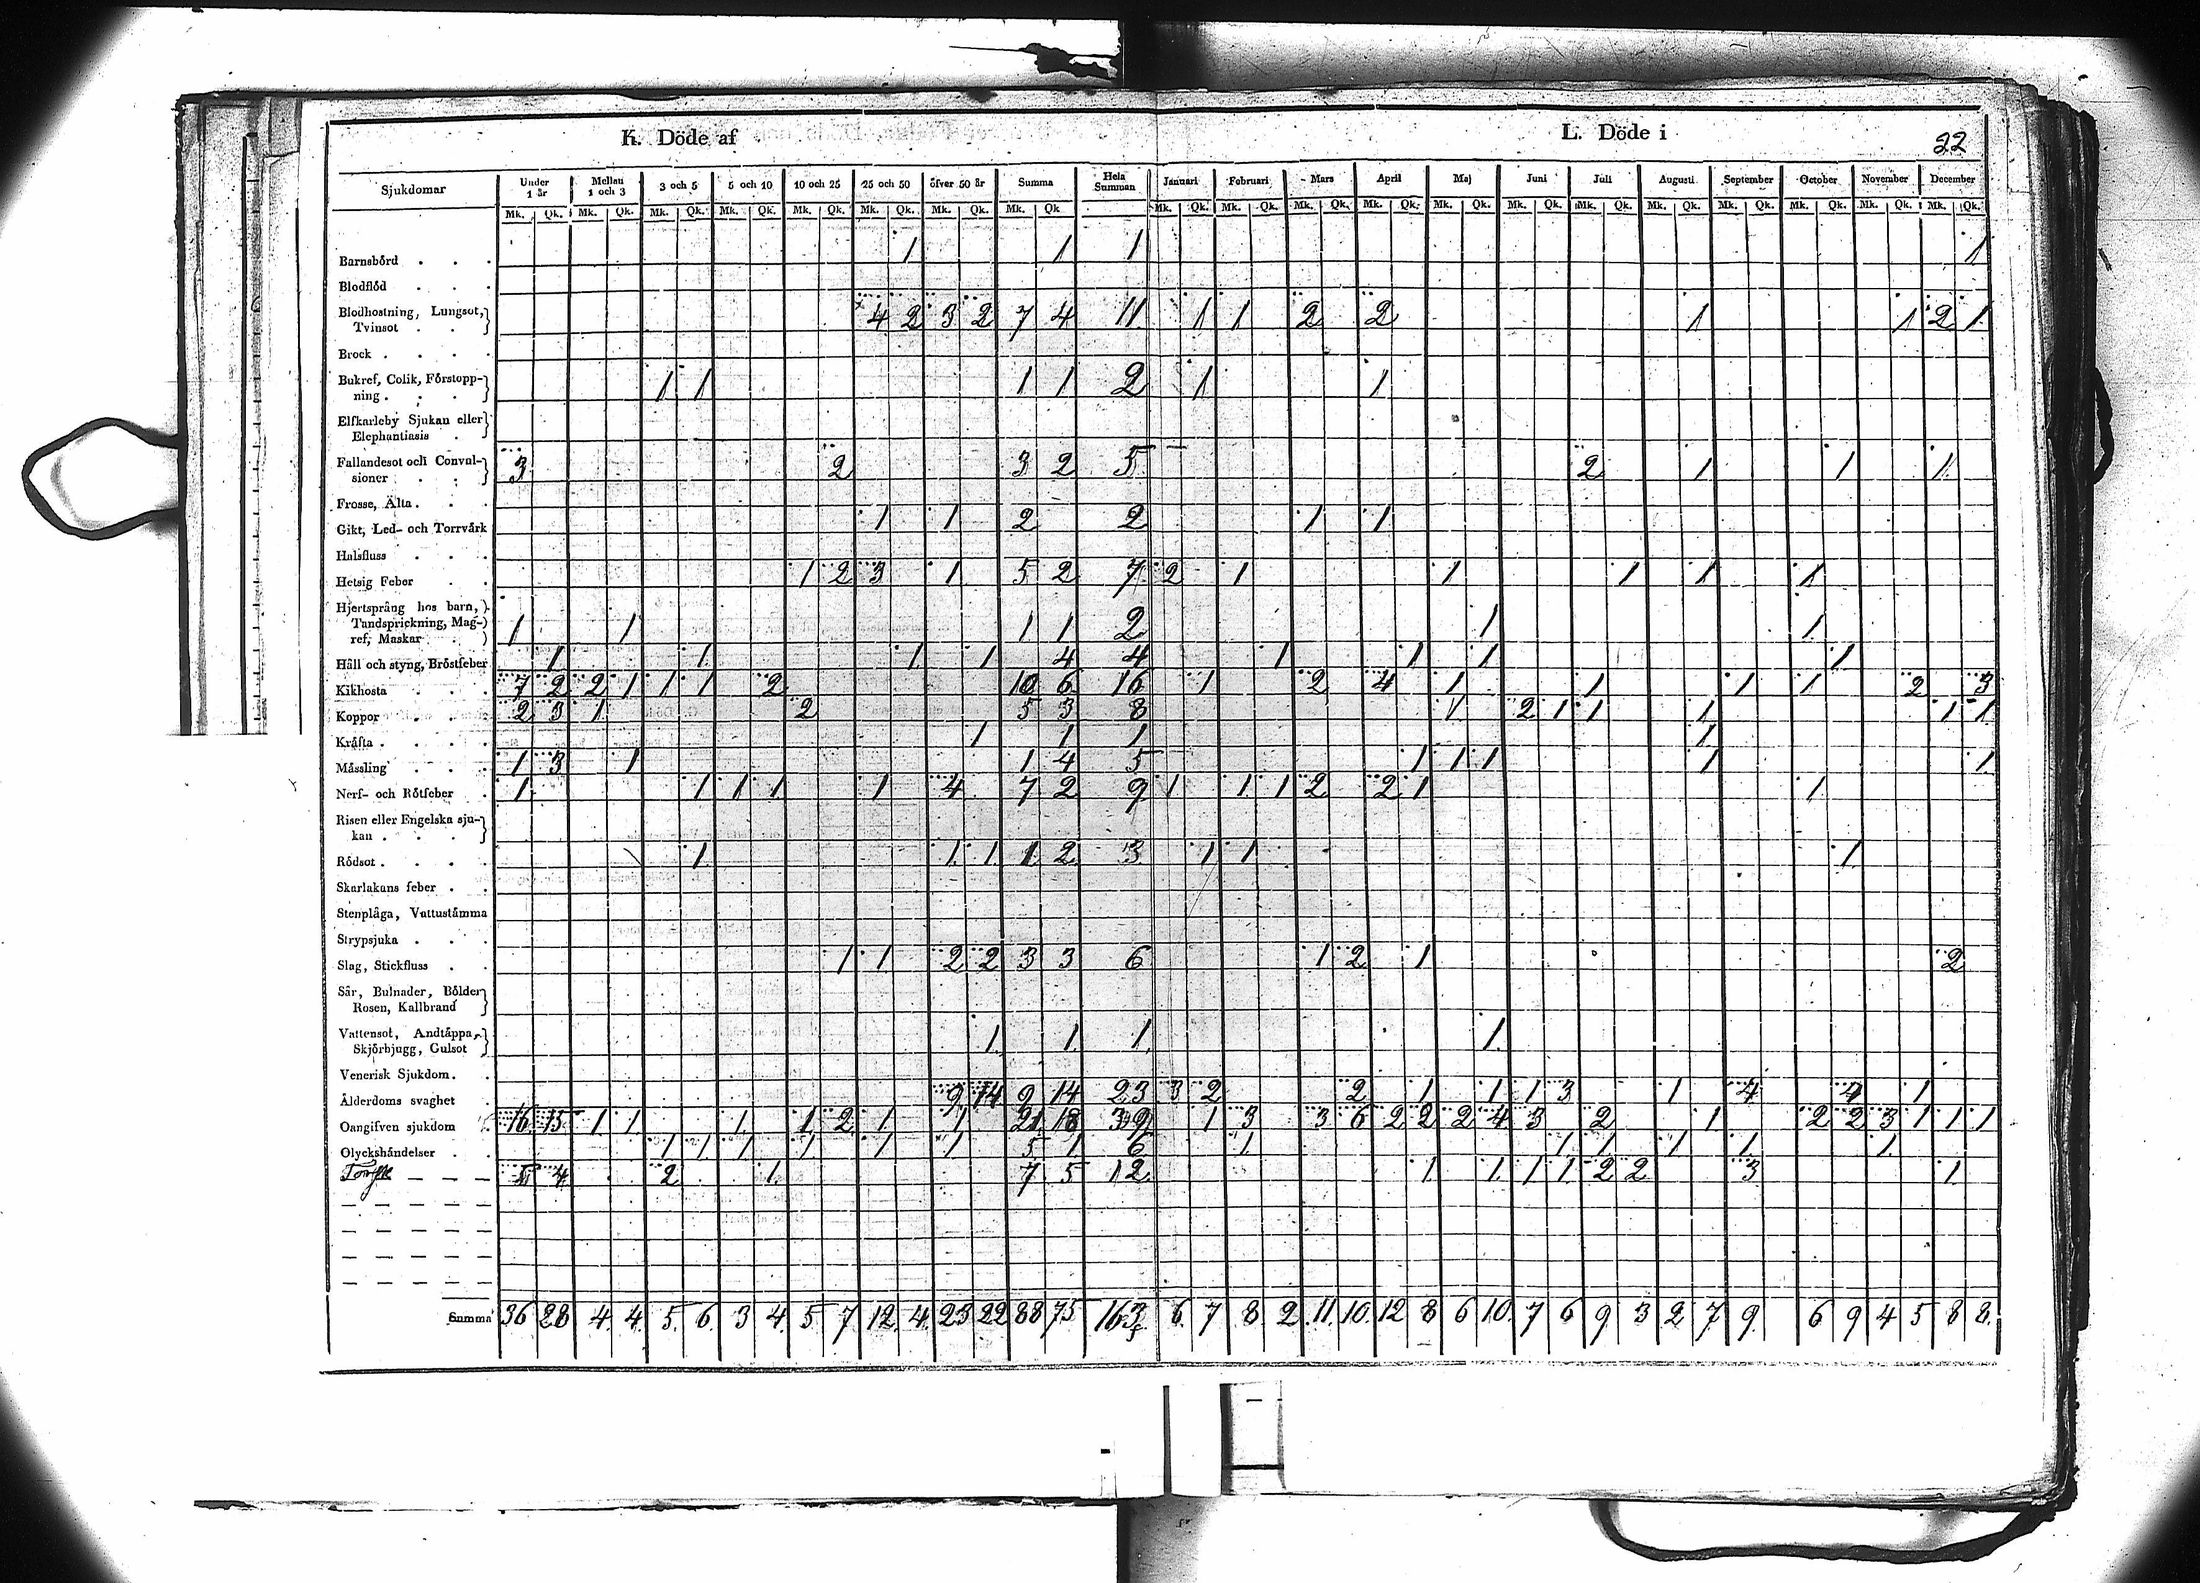 K. Döde af
L. Döde i
22
Sjukdomar Under 1 år Mellan 1 och 3 3 och 5 5 och 10 10 och 25 25 och 50 öfver 50 år Summa Hela Summan Januari Februari Mars April Maj Juni Juli Augusti September October November December
Mk. Qk. Mk. Qk. Mk. Qk. Mk. Qk. Mk. Qk. Mk. Qk. Mk. Qk. Mk. Qk Mk. Qk. Mk. Qk. Mk. Qk. Mk. Qk. Mk. Qk. Mk. Qk. Mk. Qk. Mk. Qk. Mk. Qk. Mk. Qk. Mk. Qk. Mk. Qk.
Barnsbörd 1 1 1 1
Blodflöd
Blodhostning, Lungsot,
Tvinsot 4 2 3 2 7 4 11 1 1 2 2 1 1 2 1
Brock
Bukref, Colik, Förstopp-
ning 1 1 1 1 2 1 1
Elfkarleby Sjukan eller
Elephantiasis
Fallandesot och Convul-
sioner 3 2 3 2 5 2 1 1 1
Frosse, Älta
Gikt, Led- och Torrvärk 1 1 2 2 1 1
Halsfluss
Hetsig Feber 1 2 3 1 5 2 7 2 1 1 1 1 1
Hjertsprång hos barn,
Tandsprickning, Mag-
ref, Maskar 1 1 1 1 2 1 1
Håll och styng, Bröstfeber 1 1 1 1 4 4 1 1 1 1
Kikhosta 7 2 2 1 1 1 2 10 6 16 1 2 4 1 1 1 1 2 3
Koppor 2 3 1 2 5 3 8 1 2 1 1 1 1 1
Kräfta 1 1 1 1
Mässling 1 3 1 1 4 5 1 1 1 1 1
Nerf- och Rötfeber 1 1 1 1 1 4 7 2 9 1 1 1 2 2 1 1
Risen eller Engelska sju-
kan
Rödsot 1 1 1 1 2 3 1 1 1
Skarlakans feber
Stenplåga, Vattustämma
Strypsjuka
Slag, Stickfluss 1 1 2 2 3 3 6 1 2 1 2
Sår, Bulnader, Bölder
Rosen, Kallbrand
Vattensot, Andtäppa,
Skjörbjugg, Gulsot 1 1 1 1
Venerisk Sjukdom
Ålderdoms svaghet 9 14 9 14 23 3 2 2 1 1 1 3 1 4 4 1
Oangifven sjukdom 16 13 1 1 1 1 2 1 1 21 18 39 1 3 3 6 2 2 2 4 3 2 1 2 2 3 1 1 1
Olyckshändelser 1 1 1 1 1 1 5 1 6 1 1 1 1 1 1
Torsk 5 4 2 1 7 5 12 1 1 1 1 2 2 3 1
Summa 36 28 4 4 5 6 3 4 5 7 12 4 23 22 88 75 163 6 7 8 2 11 10 12 8 6 10 7 6 9 3 2 7 9 6 9 4 5 8 8